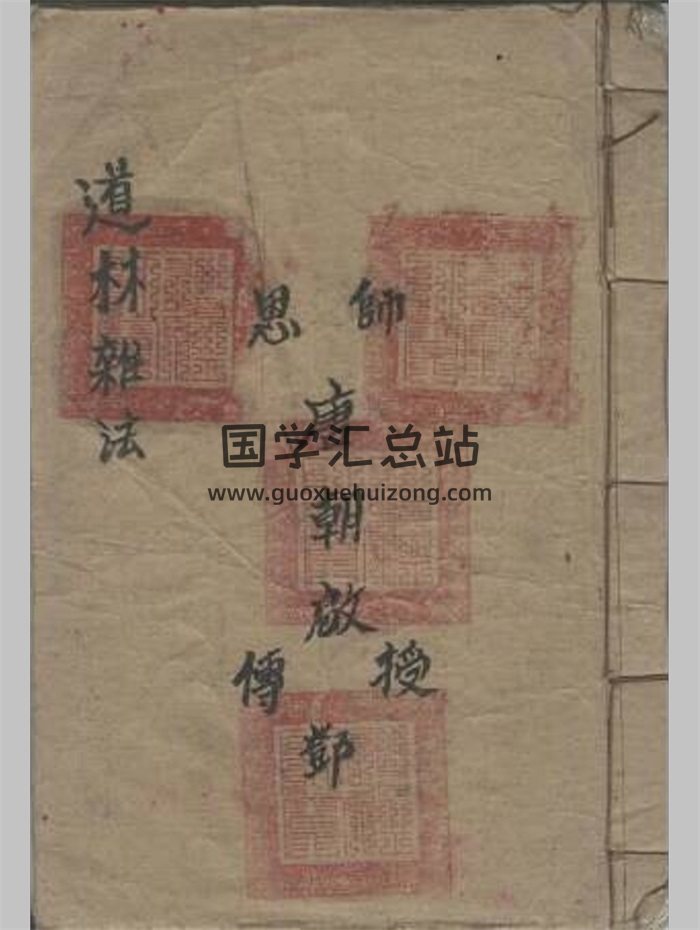 師恩
唐朝啟
授傳
鄧
道林雜法
国学汇总站
www.guoxuehuizong.com